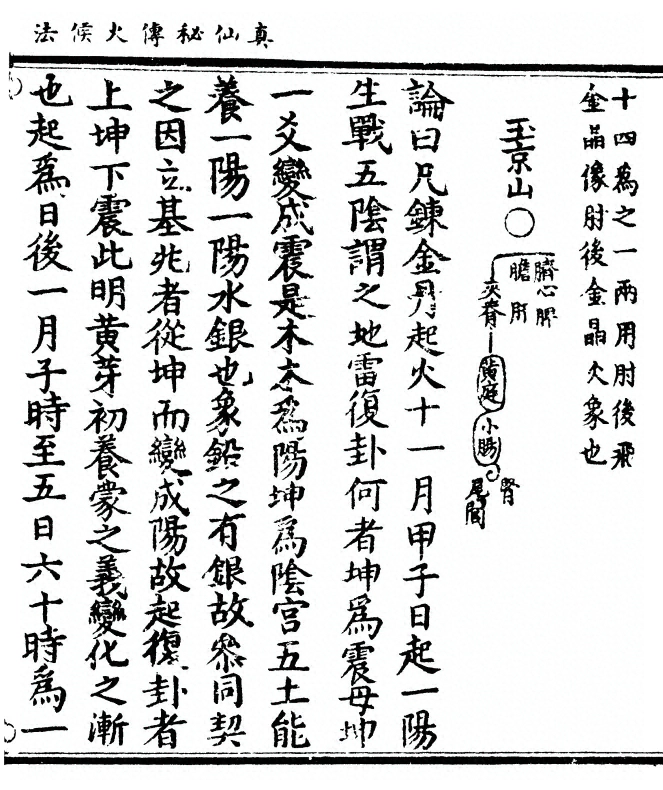 真仙秘傳火候法
十四爲之一兩用肘後飛
金晶像肘後金晶火象也
玉京山
臍心脾
膽肝
夾脊
黃庭
小腸
腎
尾閭
論曰凡鍊金丹起火十一月甲子日起一陽
生戰五陰謂之地雷復卦何者坤爲震母坤
一爻變成震是木木爲陽坤爲陰宫五土能
養一陽一陽水銀也象鉛之有銀故叅同契
之因立基兆者從坤而變成陽故起復卦者
上坤下震此明黃芽初養蒙之義變化之漸
也起爲日後一月子時至五日六十時爲一